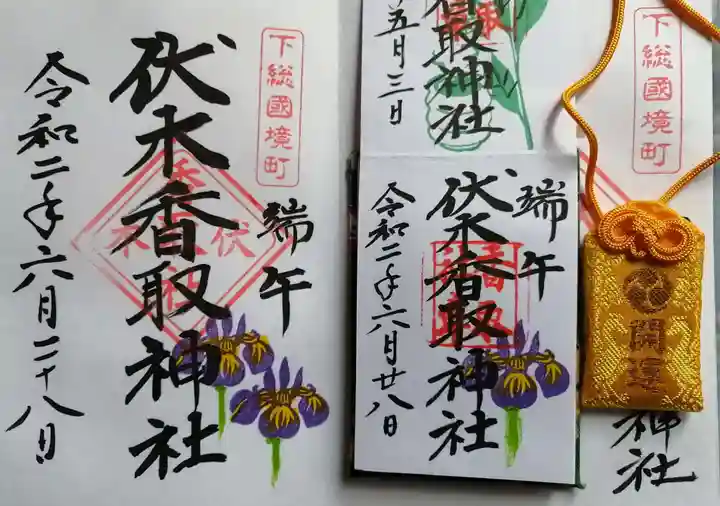 下総國境町
端午
伏木香取神社
令和二年六月二十八日
香取神社
五月三日
端午
伏木香取神社
令和二年六月廿八日
下総國境町
神社
開運